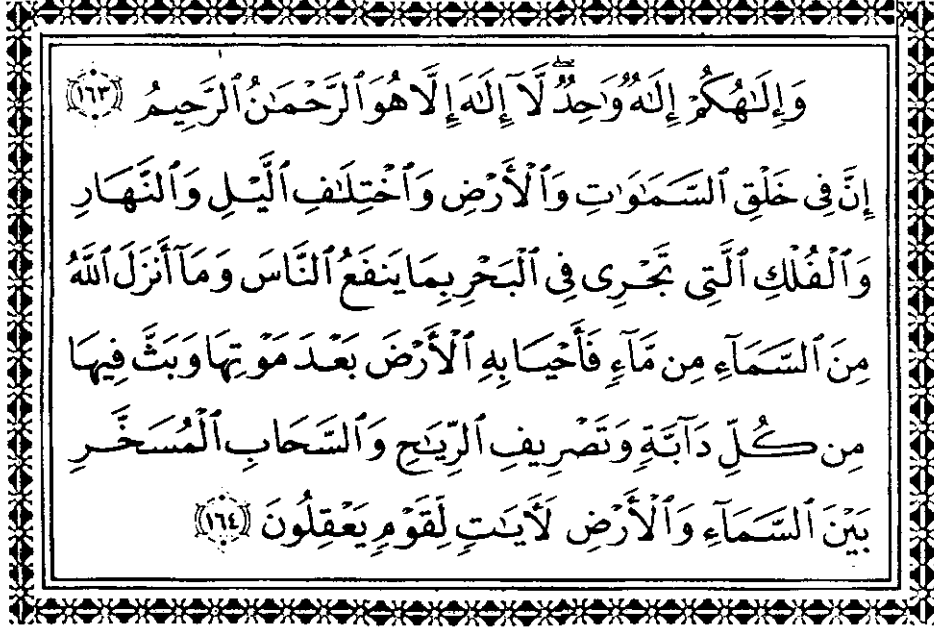 وَإِلَٰهُكُمْ إِلَٰهٌ وَٰحِدٌ ۖ لَّآ إِلَٰهَ إِلَّا هُوَ ٱلرَّحْمَٰنُ ٱلرَّحِيمُ ١٦٣
إِنَّ فِى خَلْقِ ٱلسَّمَٰوَٰتِ وَٱلْأَرْضِ وَٱخْتِلَٰفِ ٱلَّيْلِ وَٱلنَّهَارِ
وَٱلْفُلْكِ ٱلَّتِى تَجْرِى فِى ٱلْبَحْرِ بِمَا يَنفَعُ ٱلنَّاسَ وَمَآ أَنزَلَ ٱللَّهُ
مِنَ ٱلسَّمَآءِ مِن مَّآءٍ فَأَحْيَا بِهِ ٱلْأَرْضَ بَعْدَ مَوْتِهَا وَبَثَّ فِيهَا
مِن كُلِّ دَآبَّةٍ وَتَصْرِيفِ ٱلرِّيَٰحِ وَٱلسَّحَابِ ٱلْمُسَخَّرِ
بَيْنَ ٱلسَّمَآءِ وَٱلْأَرْضِ لَأَيَٰتٍ لِّقَوْمٍ يَعْقِلُونَ ١٦٤